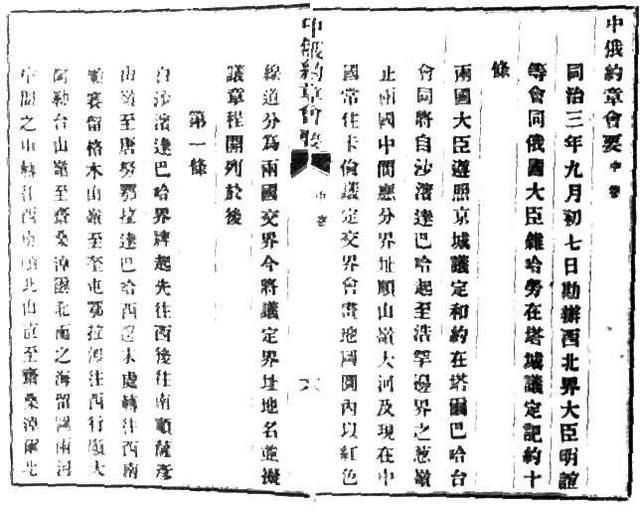 中俄約章會要 中卷
同治三年九月初七日勘辦西北界大臣明誼
等會同俄國大臣雜哈勞在塔城議定記約十
條
兩國大臣遵照京城議定和約在塔爾巴哈台
會同將自沙濱達巴哈起至浩罕邊界之葱嶺
止兩國中間應分界址順山嶺大河及現在中
國常住卡倫議定交界會畫地圖圖內以紅色
中俄約章會要 中卷
線道分為兩國交界今將議定界址地名並擬
議章程開列於後
第一條
自沙濱達巴哈界牌起先往西後往南順薩彥
山嶺至唐努鄂拉達巴哈西邊末處轉往西南
順賽留格木山嶺至奎屯鄂拉即往西行順大
阿勒台山嶺至齋桑淖爾北面之海留圖兩河
中間之山轉往西南順此山直至齋桑淖爾北